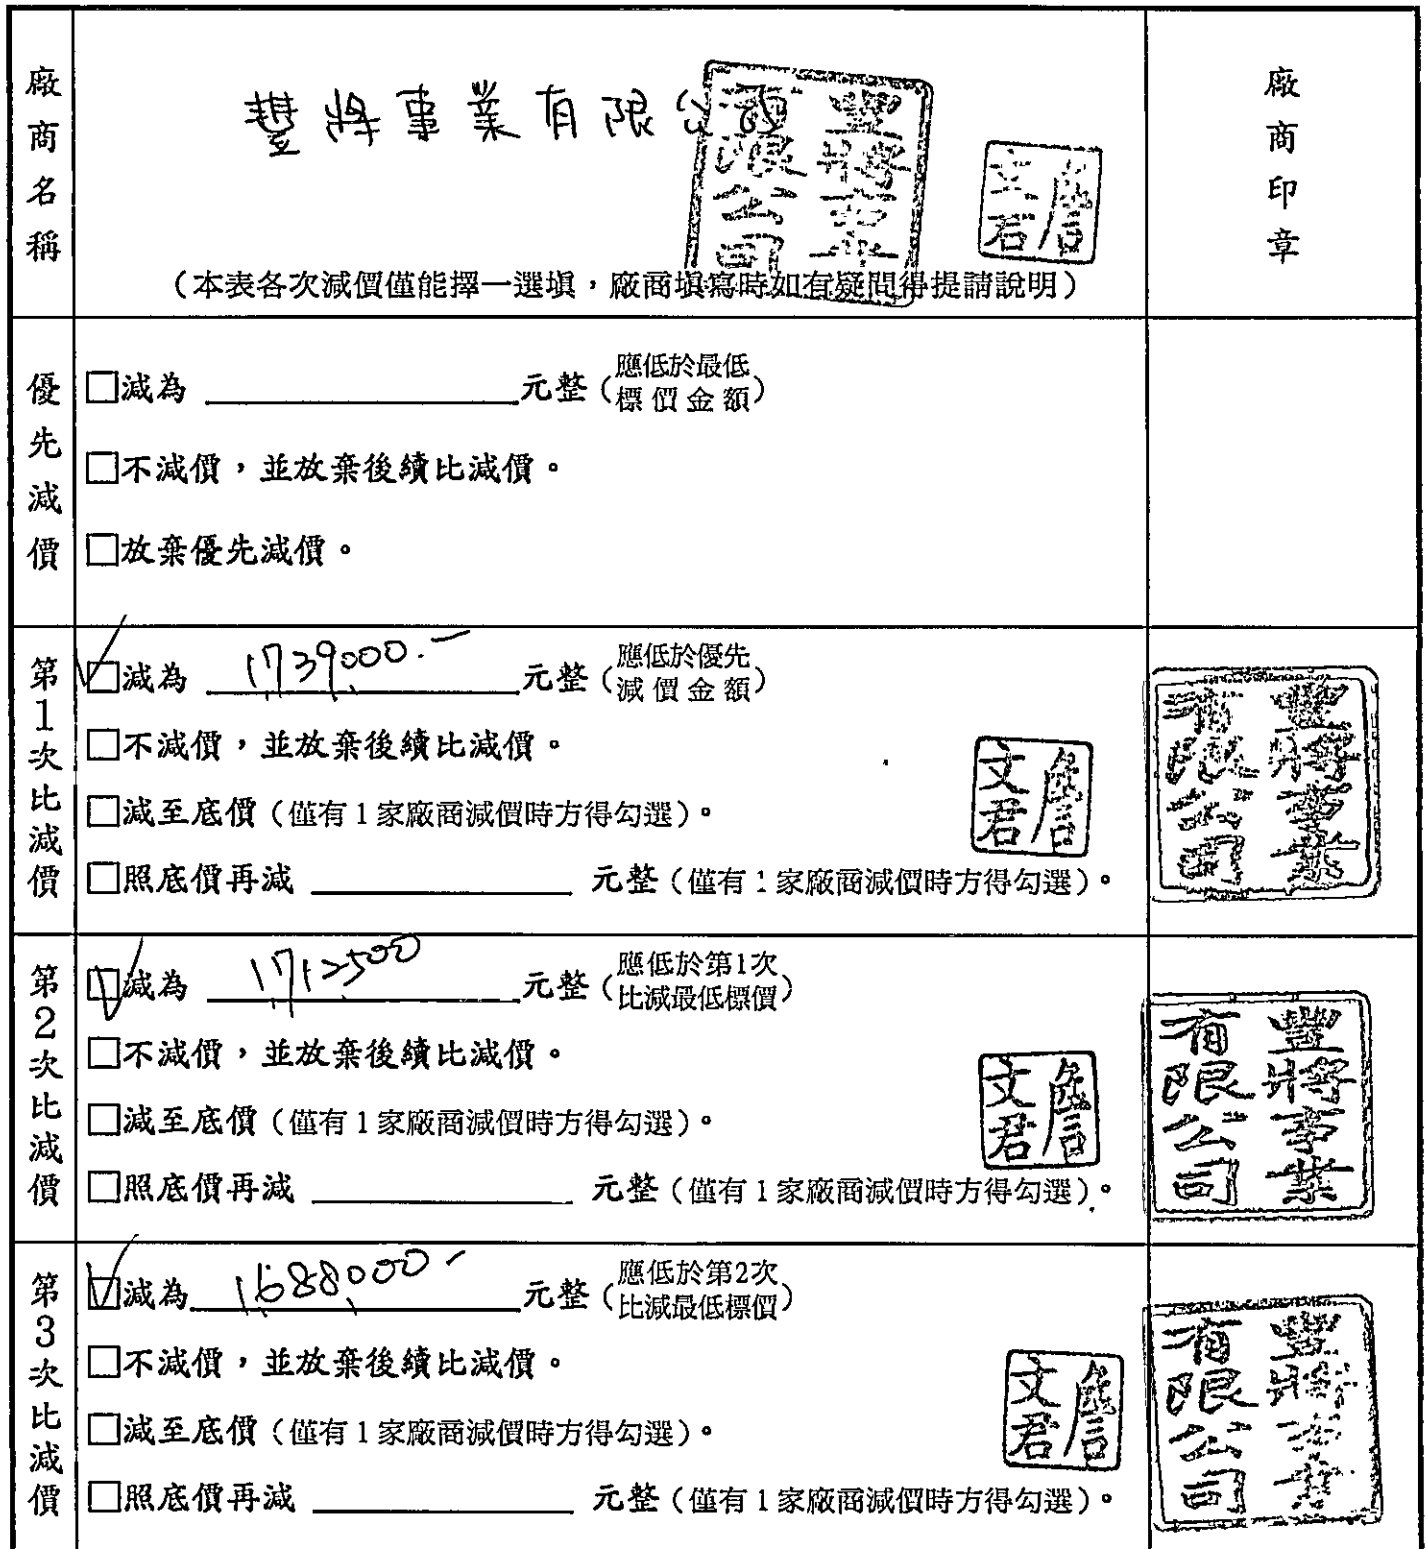 廠商名稱
豐將事業有限公司
豐將事業有限公司
詹文君
(本表各次減價僅能擇一選填，廠商填寫時如有疑問得提請說明)
廠商印章
優先減價
□減為 元整(應低於最低標價金額)
□不減價，並放棄後續比減價。
□放棄優先減價。
第1次比減價
☑減為 1,739,000.- 元整(應低於優先減價金額)
□不減價，並放棄後續比減價。
□減至底價(僅有1家廠商減價時方得勾選)。
□照底價再減 元整(僅有1家廠商減價時方得勾選)。
詹文君
豐將事業有限公司
第2次比減價
☑減為 1,712,500 元整(應低於第1次比減最低標價)
□不減價，並放棄後續比減價。
□減至底價(僅有1家廠商減價時方得勾選)。
□照底價再減 元整(僅有1家廠商減價時方得勾選)。
詹文君
豐將事業有限公司
第3次比減價
☑減為 1,688,000- 元整(應低於第2次比減最低標價)
□不減價，並放棄後續比減價。
□減至底價(僅有1家廠商減價時方得勾選)。
□照底價再減 元整(僅有1家廠商減價時方得勾選)。
詹文君
豐將事業有限公司